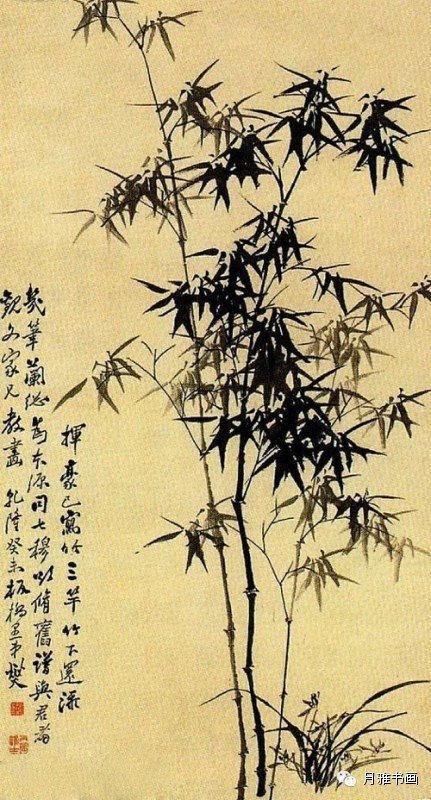 揮豪已寫竹三竿竹下還添
幾筆蘭總為本源同七穆欲脩舊譜與君看
觀文家兄教畫 乾隆癸未板橋弟燮
月雅书画